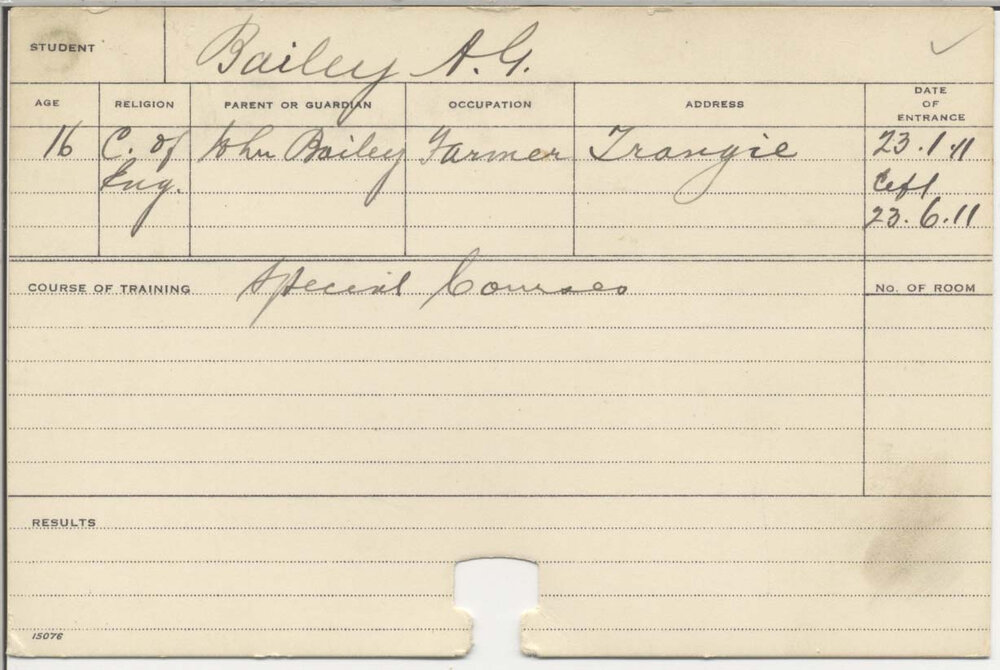 STUDENT Bailey A.G.
AGE RELIGION PARENT OR GUARDIAN OCCUPATION ADDRESS DATE OF ENTRANCE
16 C. of Eng. John Bailey Farmer Trangie 23.1.11
Left
23.6.11
COURSE OF TRAINING Special Courses No. OF ROOM
RESULTS
15076